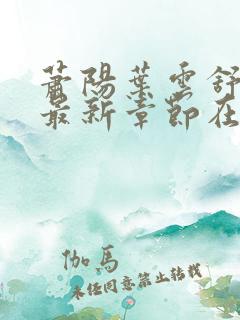 蕭陽葉雲舒
最新章節在
伽馬
未经同意禁止转载